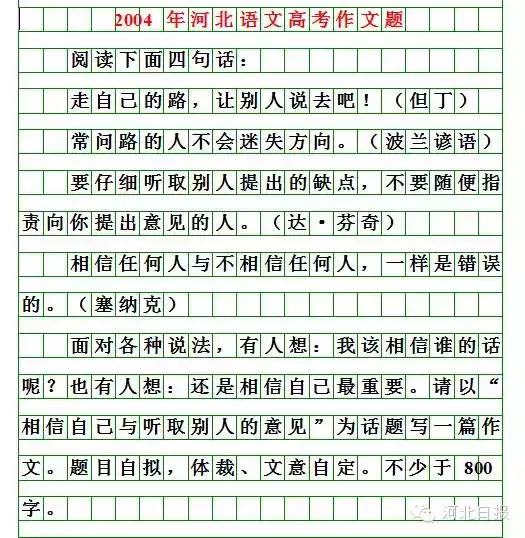 2004 年河北语文高考作文题
阅读下面四句话：
走自己的路，让别人说去吧！（但丁）
常问路的人不会迷失方向。（波兰谚语）
要仔细听取别人提出的缺点，不要随便指
责向你提出意见的人。（达·芬奇）
相信任何人与不相信任何人，一样是错误
的。（塞纳克）
面对各种说法，有人想：我该相信谁的话
呢？也有人想：还是相信自己最重要。请以“
相信自己与听取别人的意见”为话题写一篇作
文。题目自拟，体裁、文意自定。不少于 800
字。
河北日报